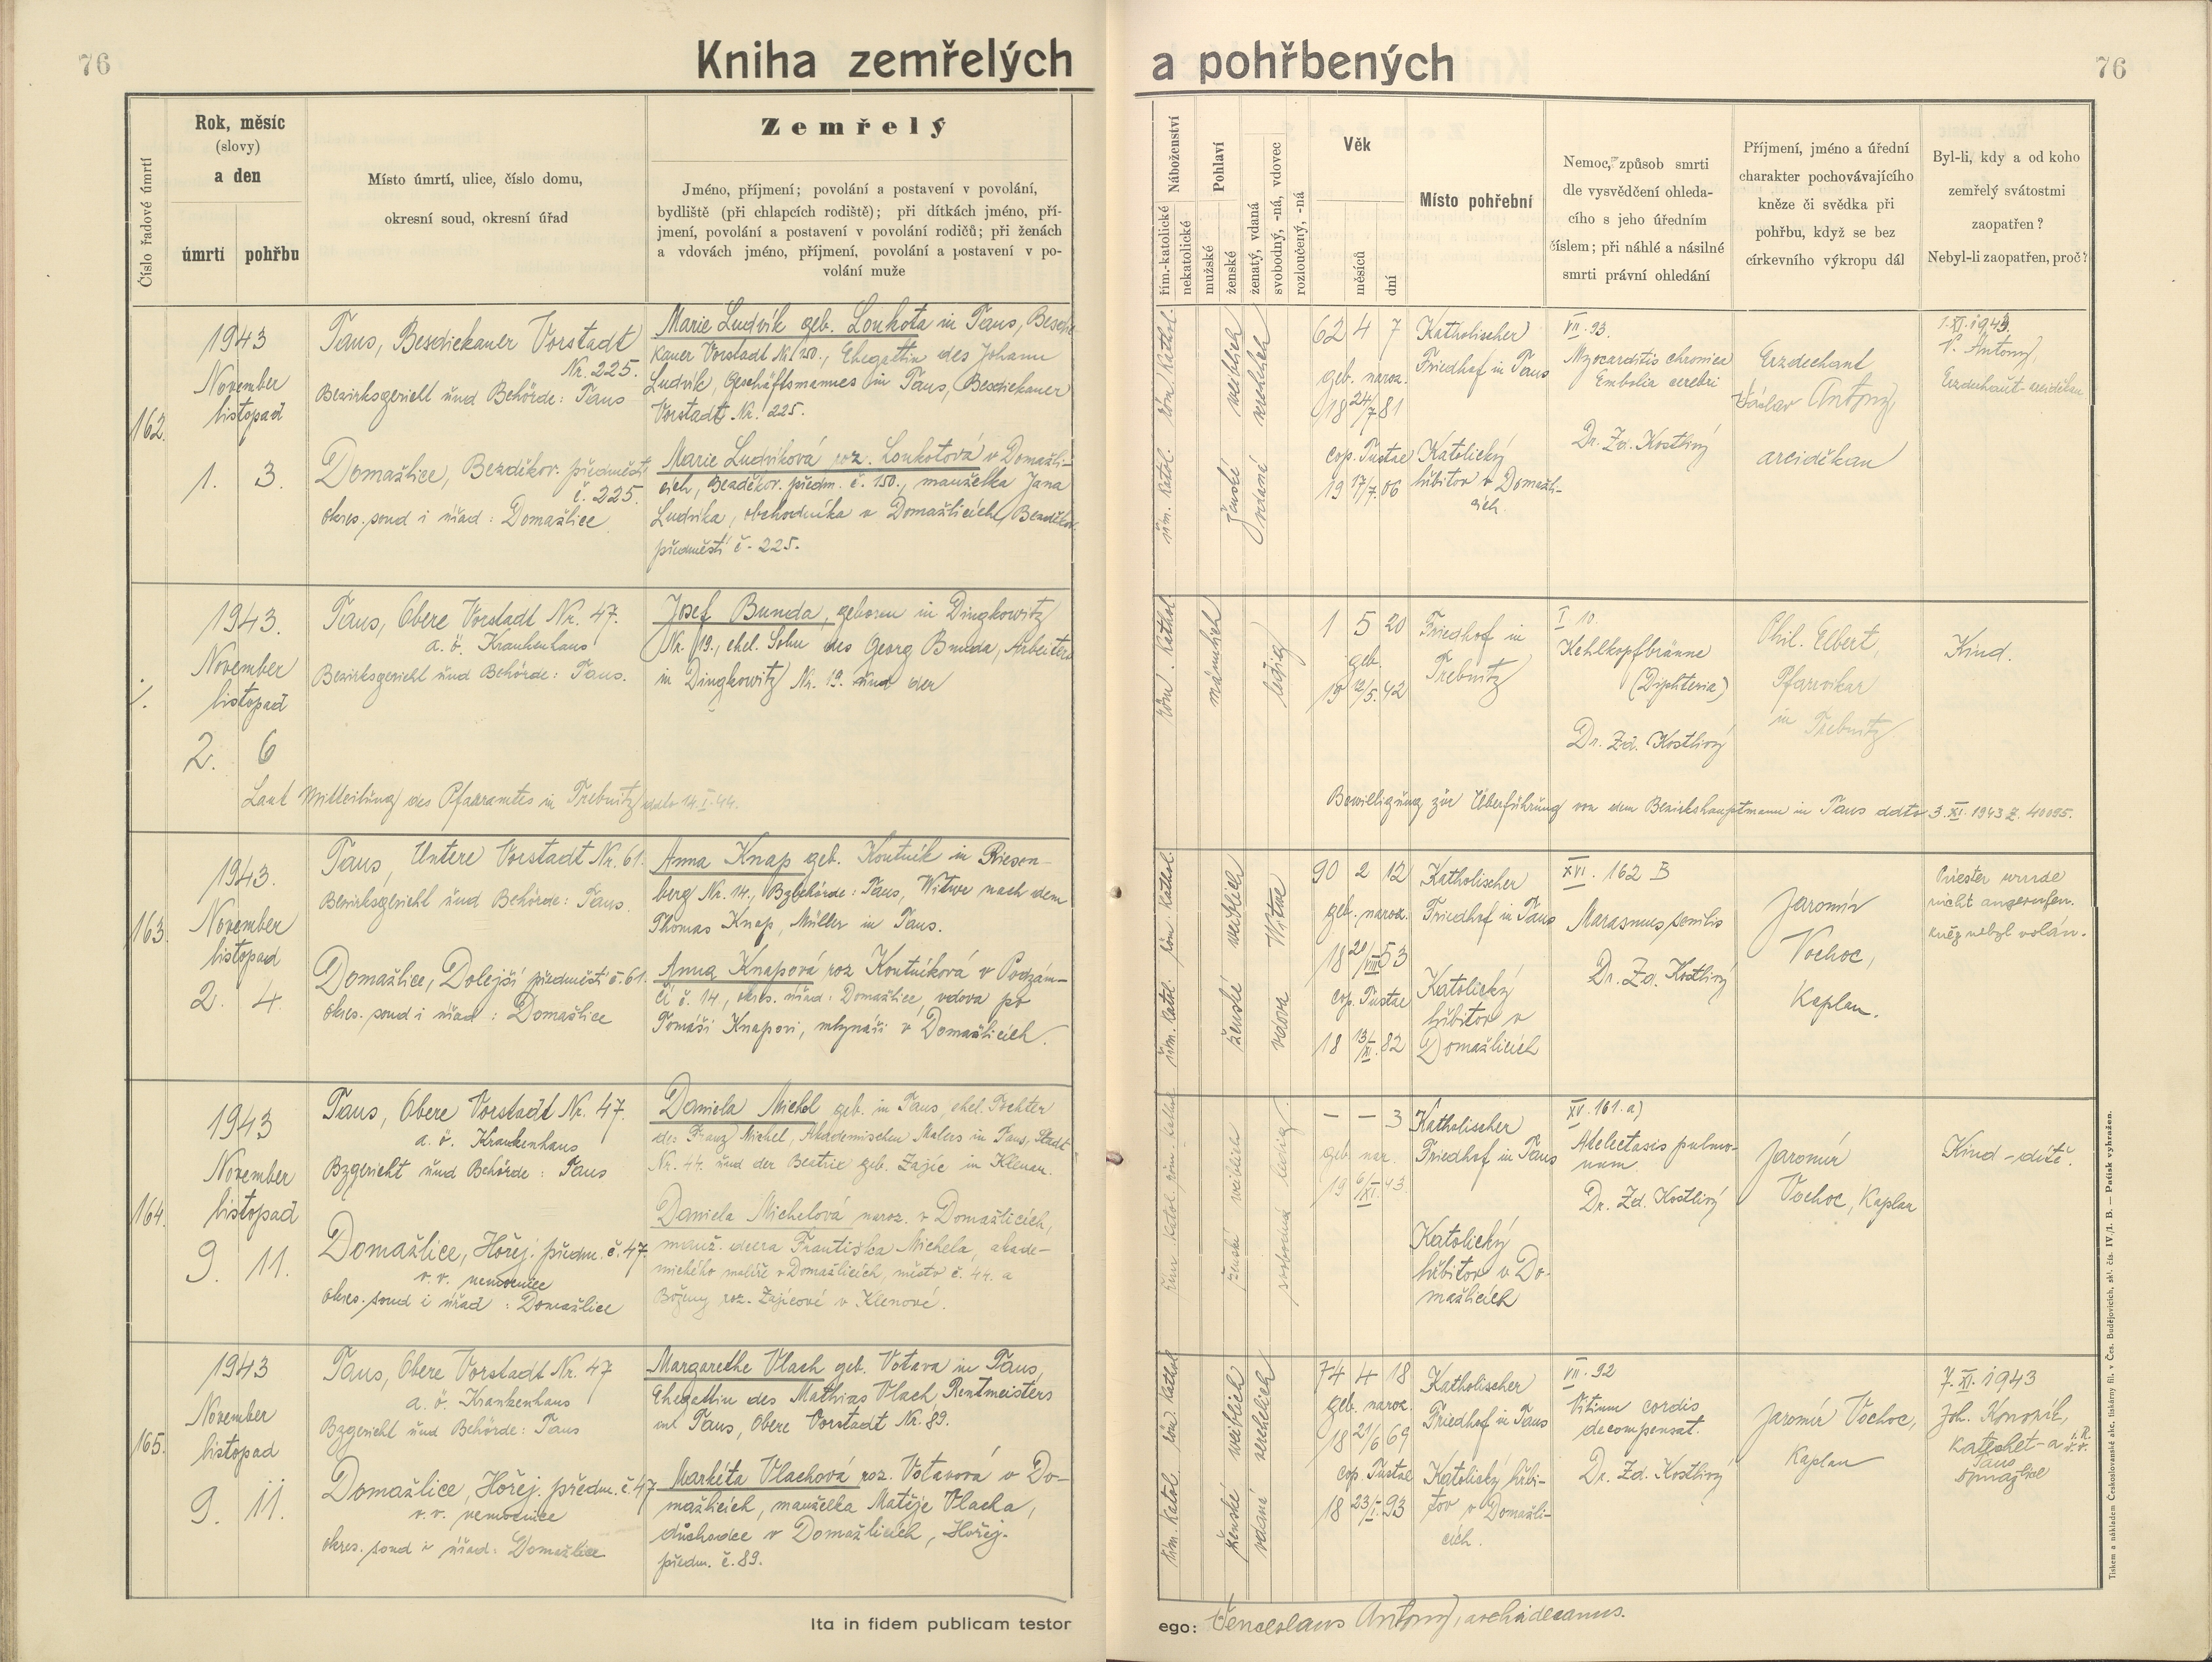 76
Kniha zemřelých a pohřbených
76
Číslo řadové úmrtí
Rok, měsíc
(slovy)
a den
úmrtí
pohřbu
Místo úmrtí, ulice, číslo domu,
okresní soud, okresní úřad
Zemřelý
Jméno, příjmení; povolání a postavení v povolání,
bydliště (při chlapcích rodiště); při dítkách jméno, pří-
jmení, povolání a postavení v povolání rodičů; při ženách
a vdovách jméno, příjmení, povolání a postavení v po-
volání muže
Náboženství
řím.-katolické
nekatolické
Pohlaví
mužské
ženské
ženatý, vdaná
svobodný, -ná, vdovec
rozloučený, -ná
Věk
měsíců
dní
Místo pohřební
Nemoc, způsob smrti
dle vysvědčení ohleda-
cího s jeho úředním
číslem; při náhlé a násilné
smrti právní ohledání
Příjmení, jméno a úřední
charakter pochovávajícího
kněze či svědka při
pohřbu, když se bez
církevního výkropu dál
Byl-li, kdy a od koho
zemřelý svátostmi
zaopatřen?
Nebyl-li zaopatřen, proč?
162.
1943
November
listopad
1. 3.
Taus, Besdiekauer Vorstadt
Nr. 225.
Bezirksgericht und Behörde: Taus
Domažlice, Bezděkov. předměstí
č. 225.
okres. soud i úřad: Domažlice
Marie Ludvík geb. Loukota in Taus, Besdie-
kauer Vorstadt Nr. 150., Ehegattin des Johann
Ludvík, Geschäftsmannes in Taus, Besdiekauer
Vorstadt Nr. 225.
Marie Ludvíková roz. Loukotová v Domažli-
cích, Bezděkov. předm. č. 150., manželka Jana
Ludvíka, obchodníka v Domažlicích, Bezděkov.
předměstí č. 225.
röm. kathol.
řím. katol.
weiblich
ženské
verehelich
vdaná
62 4 7
geb. naroz.
18 24/7 81
cop. Tustae
19 17/7. 06
Katholischer
Friedhof in Taus
Katolický
hřbitov v Domažli-
cích.
VII. 93
Myocarditis chronica
Embolia cerebri
Dr. Zd. Kostlivý
Erzdechant
Václav Antony,
arciděkan
1. XI. 1943.
V. Antony,
Erzdechant-arciděkan
1943.
November
listopad
2. 6
Taus, Obere Vorstadt Nr. 47.
a. ö. Krankenhaus
Bezirksgericht und Behörde: Taus.
Josef Bunda, geboren in Dingkowitz
Nr. 19., ehel. Sohn des Georg Bunda, Arbeiters
in Dingkowitz Nr. 19. und der
Laut Mitteilung des Pfarramtes in Trebnitz ddto 14. I. 44.
röm. kathol.
männlich
ledig
1 5 20
geb.
19 12/5. 42
Friedhof in
Trebnitz
I 10.
Kehlkopfbräune
(Diphteria)
Dr. Zd. Kostlivý
Phil. Elbert,
Pfarrvikar
in Trebnitz
Kind.
Bewilligung zür Überführung von dem Bezirkshauptmann in Taus ddto 3. XI. 1943 Z. 40095.
163.
1943.
November
listopad
2. 4.
Taus, Untere Vorstadt Nr. 61.
Bezirksgericht und Behörde: Taus.
Domažlice, Dolejší předměstí č. 61.
okres. soud i úřad: Domažlice
Anna Knap geb. Koutník in Riesen-
berg Nr. 14., Bzbehörde: Taus, Witwe nach dem
Thomas Knap, Müller in Taus.
Anna Knapová roz Koutníková v Podzám-
čí č. 14, okres. úřad: Domažlice, vdova po
Tomáši Knapovi, mlynáři v Domažlicích.
röm. kathol.
řím. katol.
weiblich
ženské
Witwe
vdova
90 2 12
geb. naroz.
18 20/VIII 53
cop. Tustae
18 13/XI. 82
Katholischer
Friedhof in Taus
Katolický
hřbitov v
Domažlicích
XVI. 162 B
Marasmus senilis
Dr. Zd. Kostlivý
Jaromír
Vochoc,
Kaplan.
Priester wurde
nicht angerufen.
kněz nebyl volán.
164.
1943
November
listopad
9. 11.
Taus, Obere Vorstadt Nr. 47.
a. ö. Krankenhaus
Bzgericht und Behörde: Taus
Domažlice, Hořej. předm. č. 47.
v. v. nemocnice
okres. soud i úřad: Domažlice
Daniela Michel geb. in Taus, ehel. Tochter
des Franz Michel, Akademischen Malers in Taus, Stadt
Nr. 44. und der Beatrix geb. Zajíc in Klenau.
Daniela Michelová naroz. v Domažlicích,
manž. dcera Františka Michela, akade-
mického malíře v Domažlicích, město č. 44. a
Boženy roz. Zajícové v Klenové.
röm. kathol.
řím. katol.
weiblich
ženské
ledig.
svobodná
– – 3
geb. nar.
19 6/XI. 43.
Katholischer
Friedhof in Taus
Katolický
hřbitov v Do-
mažlicích
XV. 161. a)
Atelectasis pulmo-
num.
Dr. Zd. Kostlivý
Jaromír
Vochoc, Kaplan
Kind - dítě.
165.
1943
November
listopad
9. 11.
Taus, Obere Vorstadt Nr. 47
a. ö. Krankenhaus
Bzgericht und Behörde: Taus
Domažlice, Hořej. předm. č. 47
v. v. nemocnice
okres. soud i úřad: Domažlice
Margarethe Vlach geb. Votava in Taus,
Ehegattin des Mathias Vlach, Rentmeisters
in Taus, Obere Vorstadt Nr. 89.
Markéta Vlachová roz. Votavová v Do-
mažlicích, manželka Matěje Vlacha,
důchodce v Domažlicích, Hořej.
předm. č. 89.
röm kathol.
řím. katol.
weiblich
ženské
verehelich
vdaná
74 4 18
geb. naroz.
18 21/6 69
cop. Tustae
18 23/I. 93
Katholischer
Friedhof in Taus
Katolický hřbi-
tov v Domažli-
cích.
VII. 92
Vitium cordis
decompensat.
Dr. Zd. Kostlivý
Jaromír Vochoc,
Kaplan
7. XI. 1943
Joh. Konopík,
Katechet-a
Taus
Domažlice
Ita in fidem publicam testor
ego: Venceslaus Antony, archidecanus.
Tiskem a nákladem Českoslovanské akc. tiskárny fil. v Čes. Budějovicích, skl. čís. IV./1. B. — Patisk vyhražen.